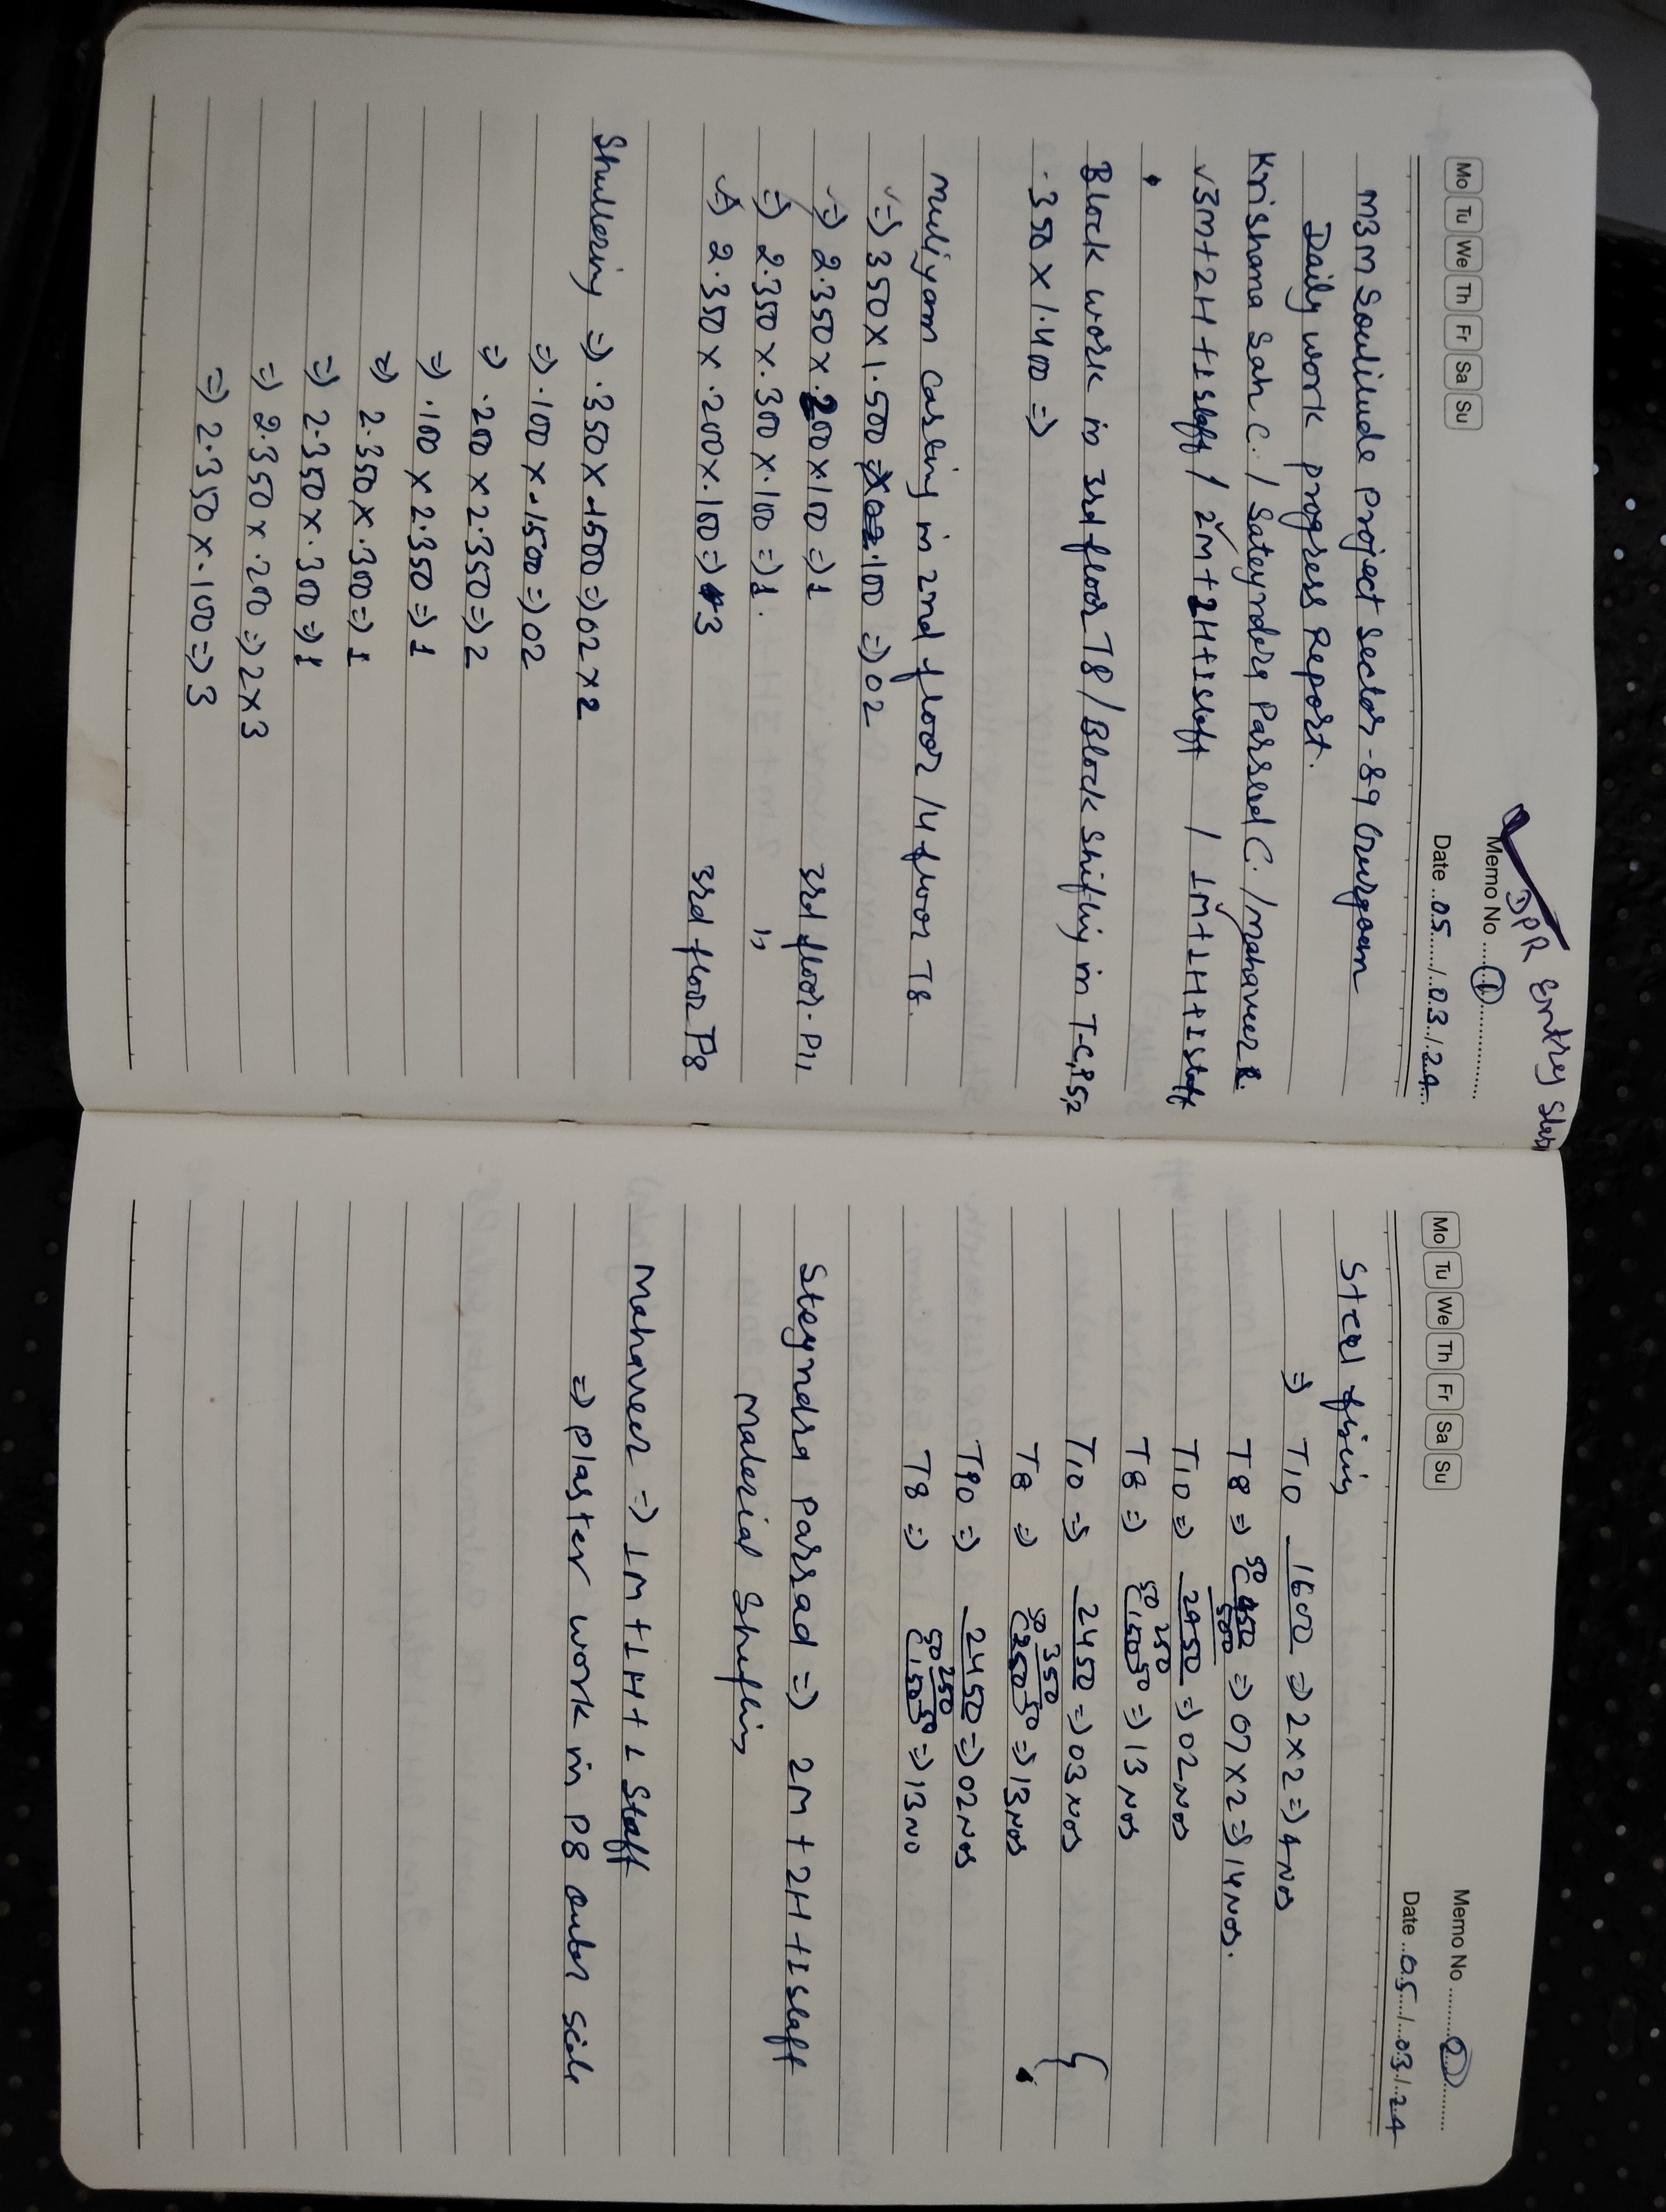 DPR Entrey
Mo Tu We Th Fr Sa Su
Memo No 1
Date 05/03/24
M3M Soulitude Project Sector-89 Gurgoan
Daily work progress Report.
Krishana Sah C. / Sateyndera Parsad C. / Mahaveer
√3M+2H+1staff / 2M+2H+1staff / 1M+1H+1staff
Block work in 3rd floor T8/Block Shifting in T-C,
.350 X 1.400 =>
muliyann casting in 2nd floor /4 floor T8.
=> 350 X 1.500 .100 => 02
=> 2.350 x .200 x .100 => 1 3rd floor - P11
=> 2.350 x .300 x .100 => 1. "
=> 2.350 x .200 x .100 => 3 3rd floor P8
Shullering => .350 X .1500 => 02 x 2
=> .100 x .1500 => 02
=> .200 x 2.350 => 2
=> .100 x 2.350 => 1
=> 2.350 x .300 => 1
=> 2.350 x .300 => 1
=> 2.350 x .200 => 2 x 3
=> 2.350 x .100 => 3
Mo Tu We Th Fr Sa Su
Memo No 2
Date 05/03/24
Steel fixing
=> T10 1600 => 2 x 2 => 4 Nos
T8 => 50 450 500 => 07 x 2 => 14 Nos.
T10 => 2950 => 02 Nos
T8 => 50 250 150 50 => 13 Nos
T10 => 2450 => 03 Nos
T8 => 50 350 250 50 => 13 Nos
T10 => 2450 => 02 Nos
T8 => 50 250 150 50 => 13 No
Steyndra Parsad => 2M + 2H + 1staff
Material Shifting
Mahaveer => 1M + 1H + 1 Staff
=> Plaster work in P8 outer side